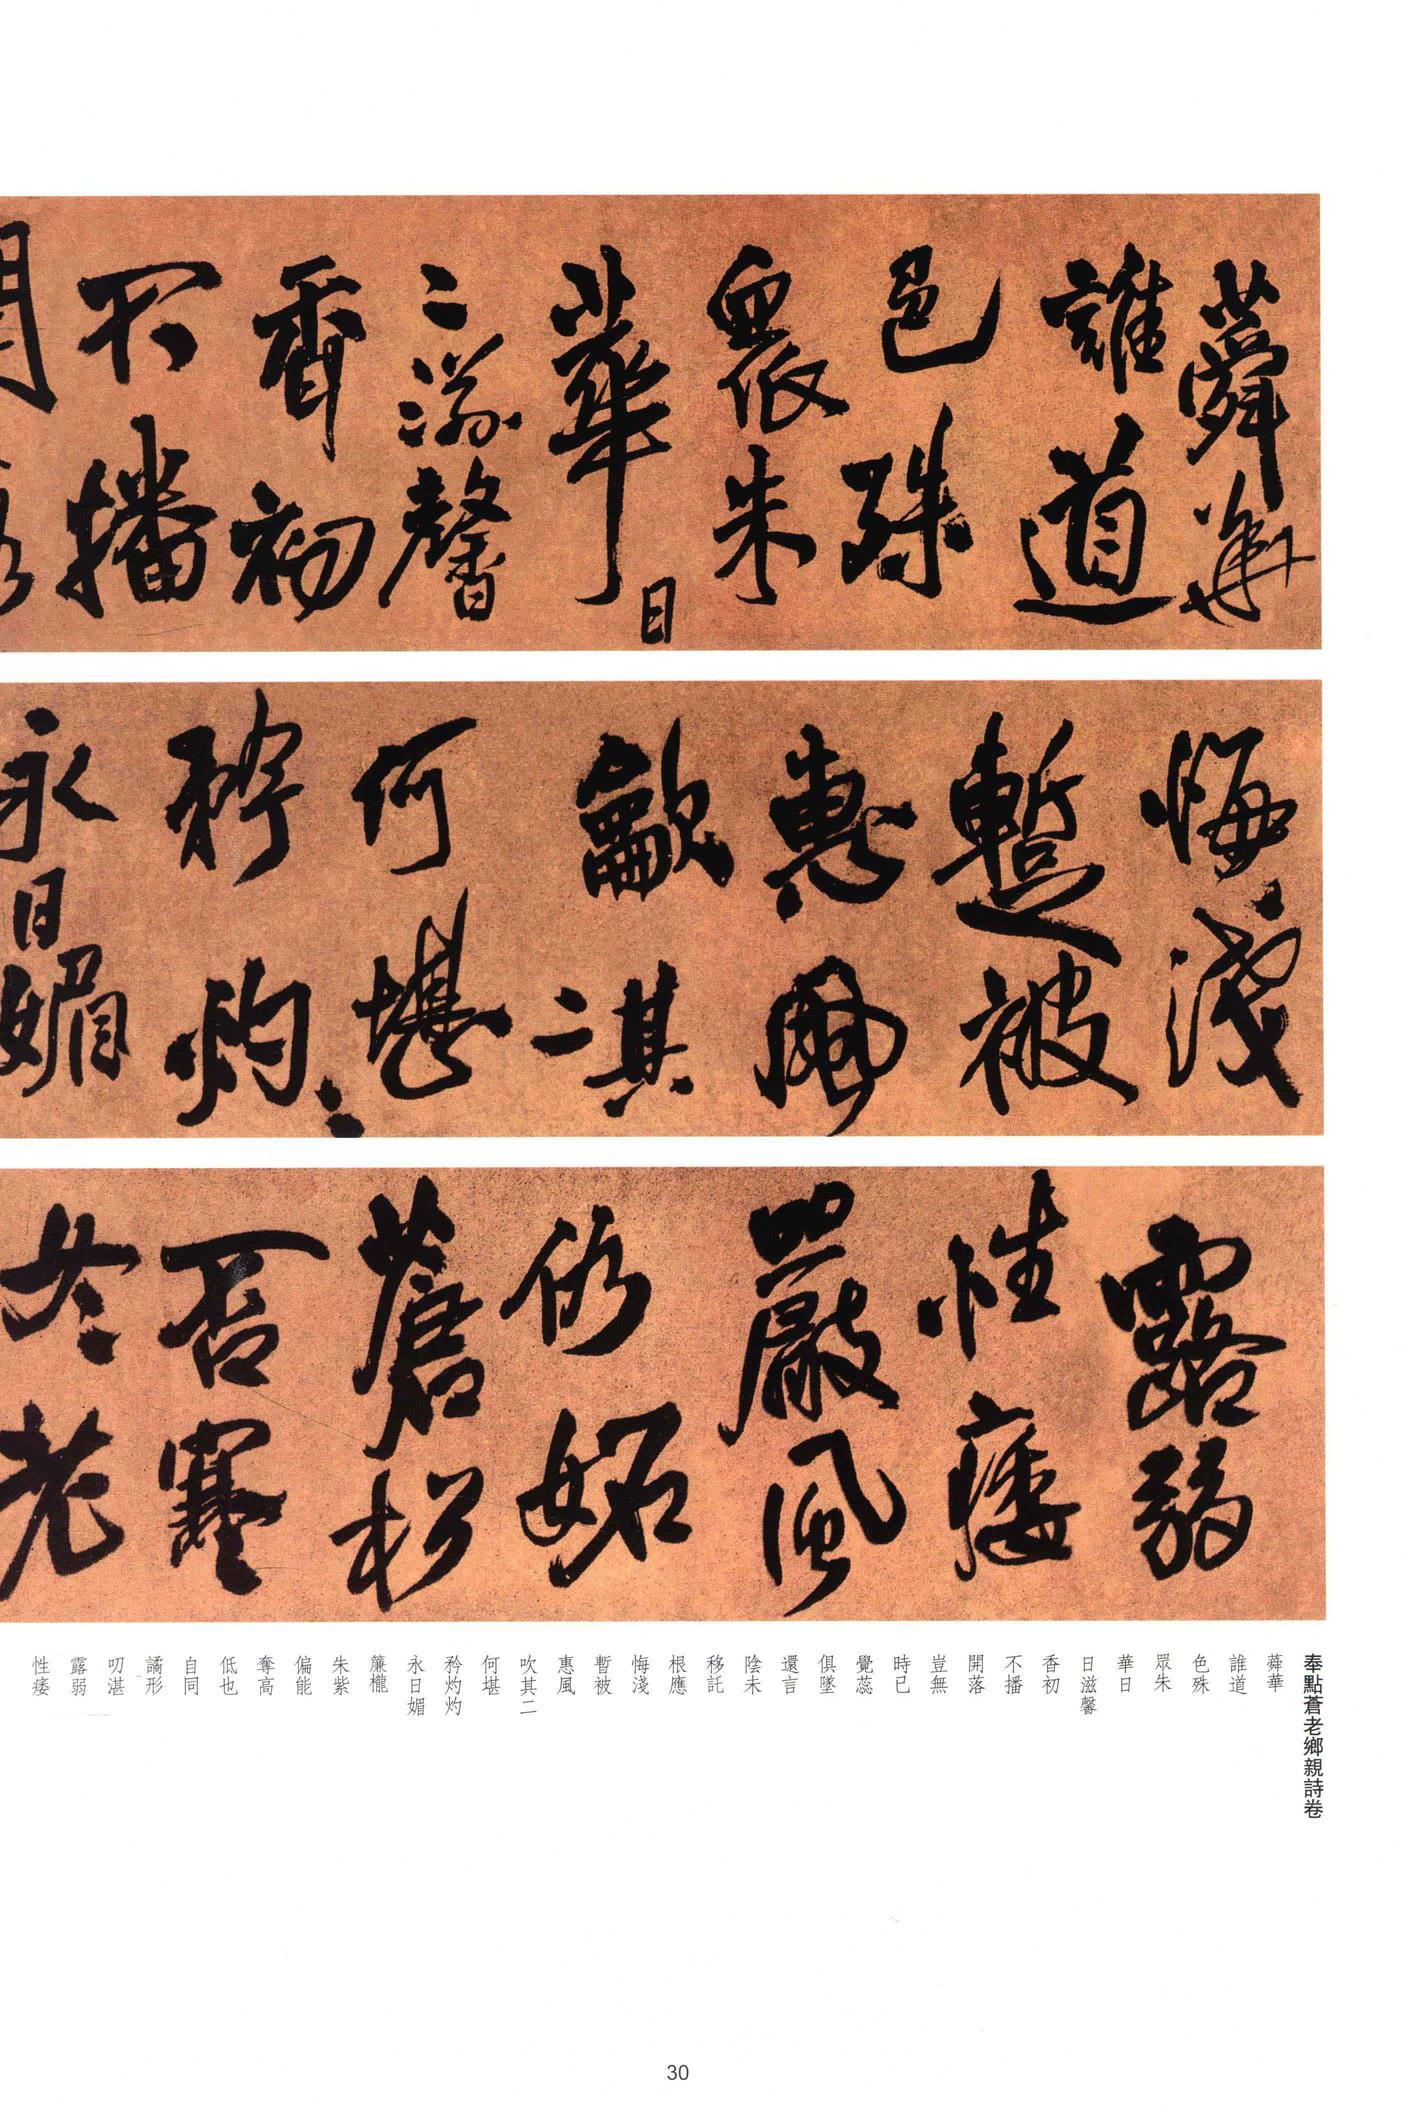 蕣華
誰道
色殊
眾朱
華日
〻滋馨
香初
不播
悔淺
暫被
惠風
龡其二
何堪
矜灼〻
永日媚
露弱
性痿
嚴風
仍妬
蒼松
否寒
冬老
奉點蒼老鄉親詩卷
蕣華
誰道
色殊
眾朱
華日
日滋馨
香初
不播
開落
豈無
時已
覺蕊
俱墜
還言
陰未
移託
根應
悔淺
暫被
惠風
吹其二
何堪
矜灼灼
永日媚
簾櫳
朱紫
偏能
奪高
低也
自同
譎形
叨湛
露弱
性痿
30